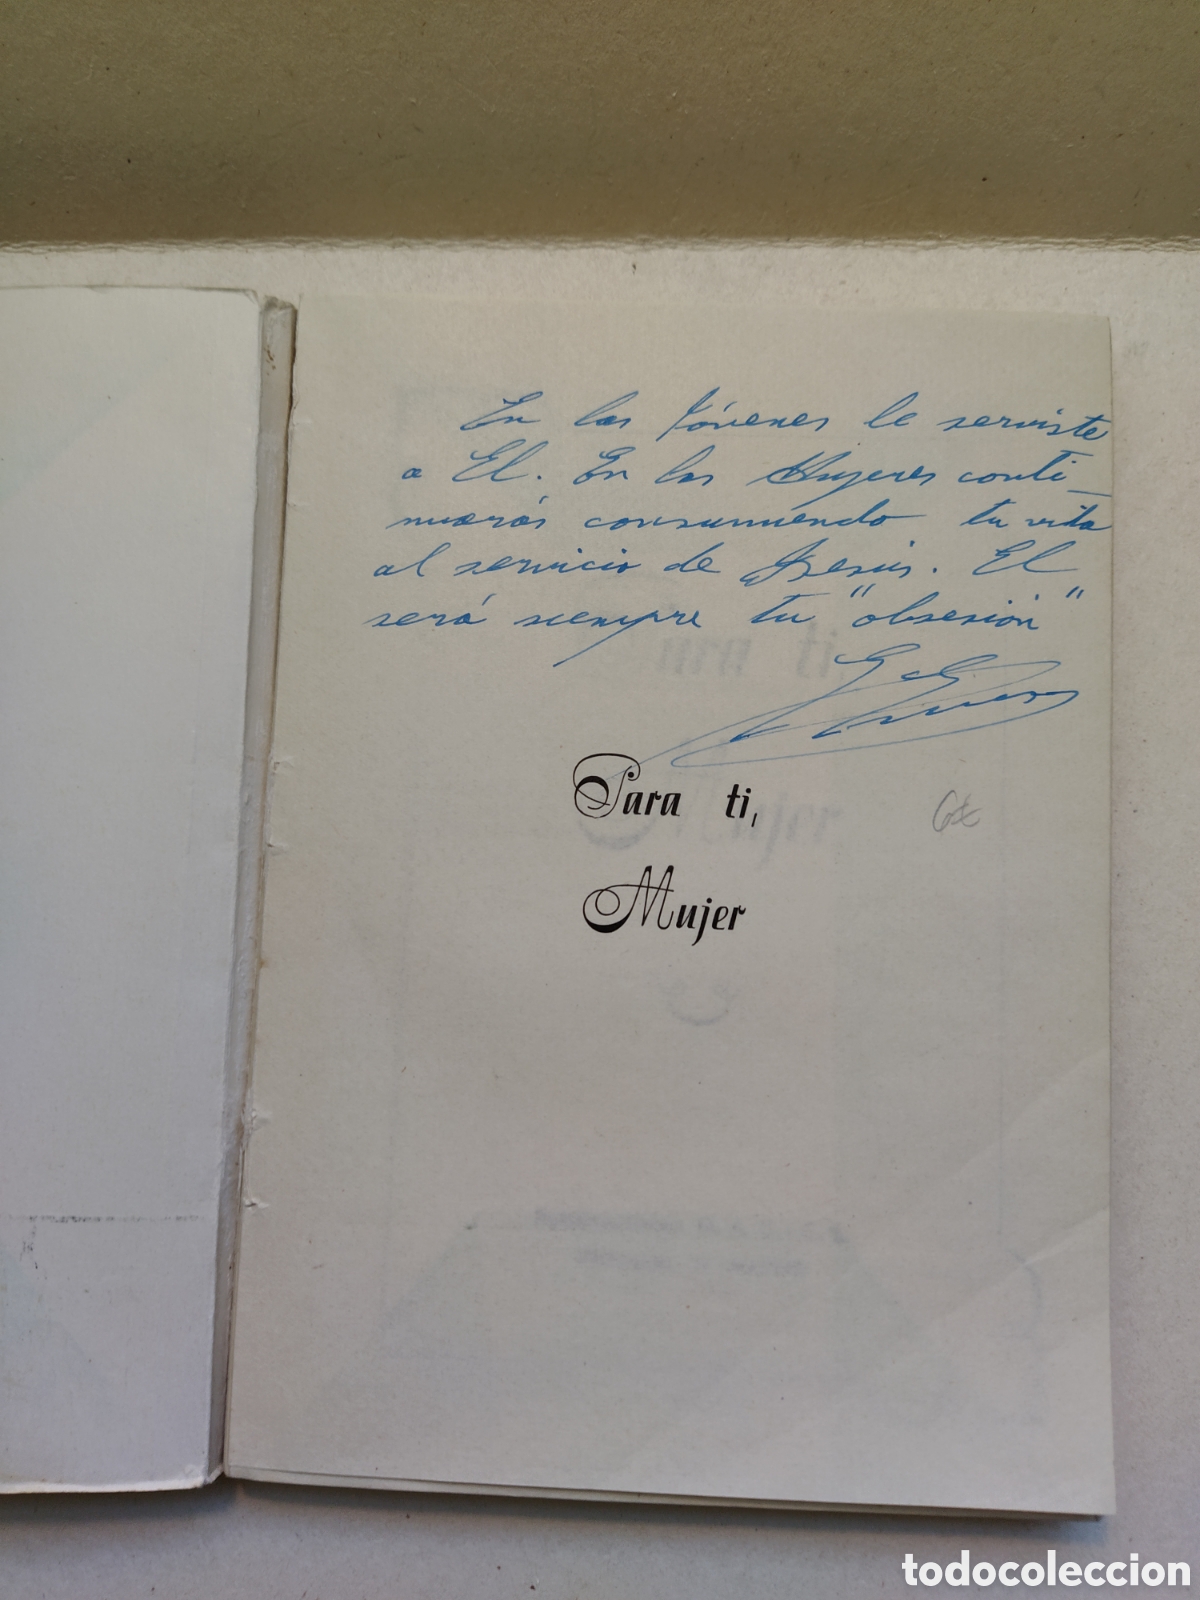 En las Jóvenes le serviste
a El. En las Mujeres conti-
nuarás consumiendo tu vida
al servicio de Jesús. El
será siempre tu "obsesión"
Para ti,
Mujer
todocoleccion